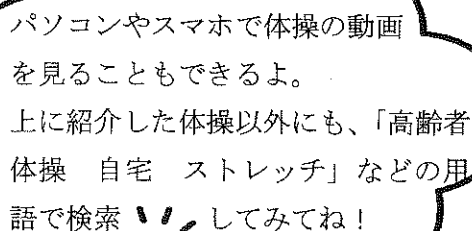 パソコンやスマホで体操の動画
を見ることもできるよ。
上に紹介した体操以外にも、「高齢者
体操　自宅　ストレッチ」などの用
語で検索してみてね！